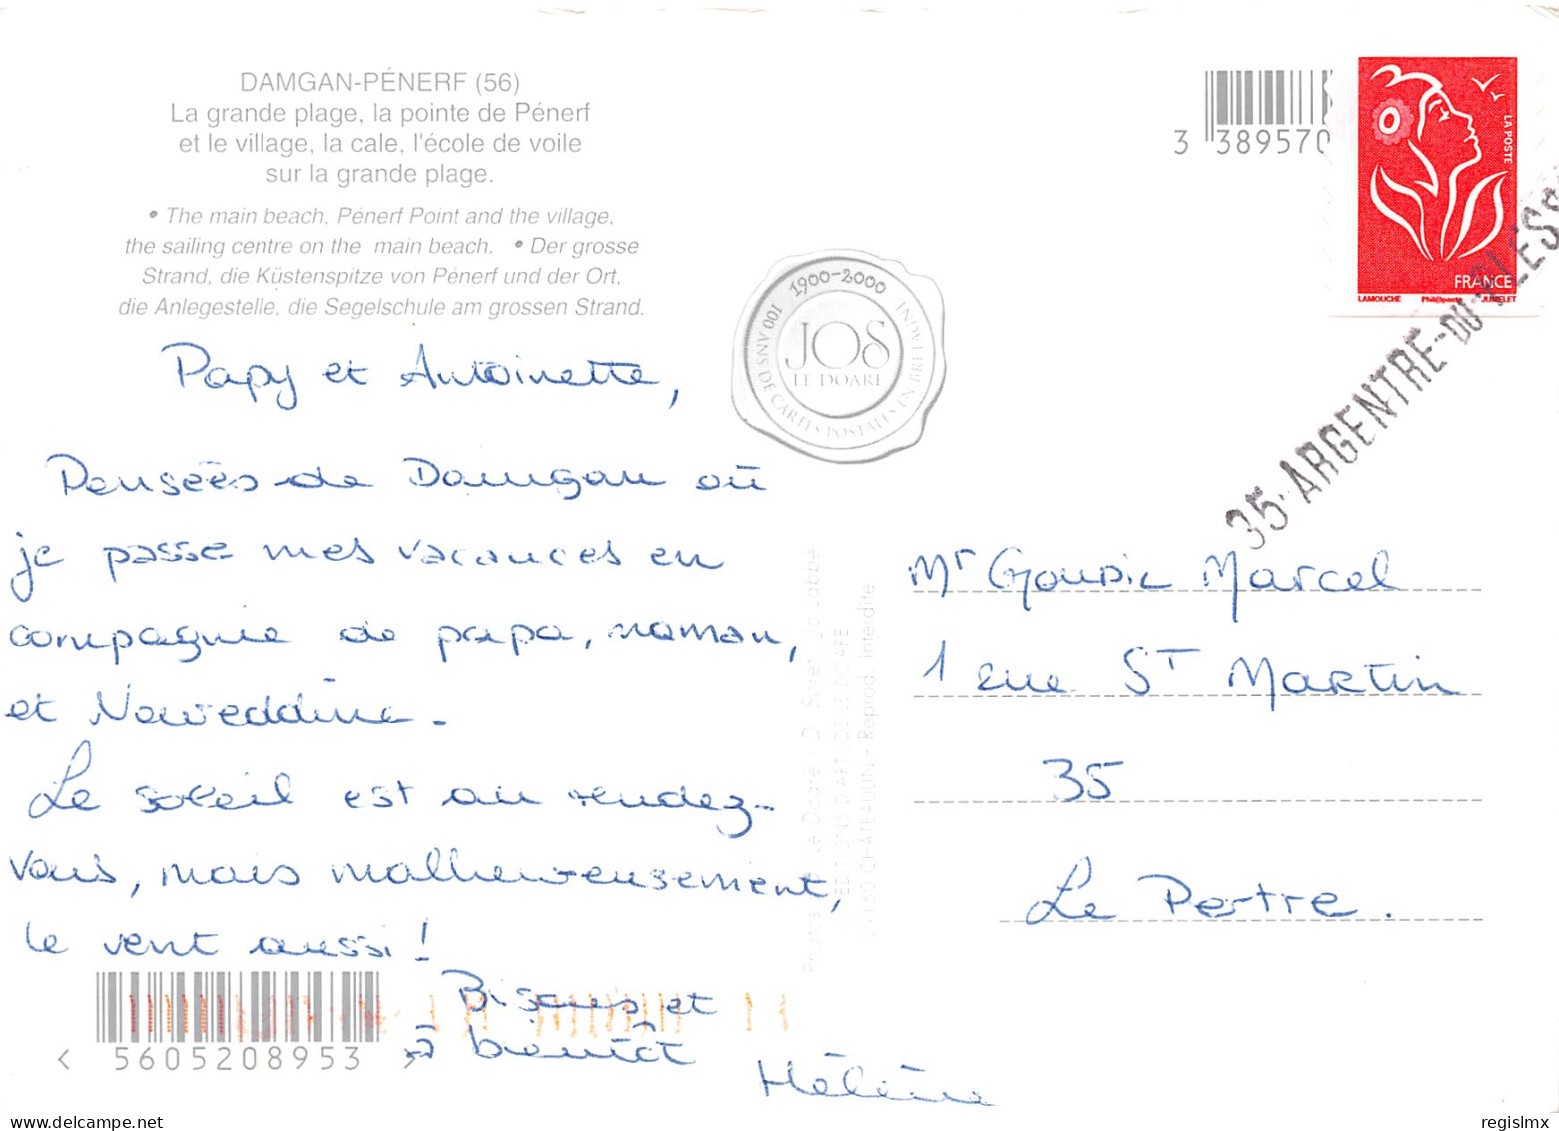 DAMGAN-PÉNERF (56)
La grande plage, la pointe de Pénerf
et le village, la cale, l'école de voile
sur la grande plage.
• The main beach, Pénerf Point and the village,
the sailing centre on the main beach. • Der grosse
Strand, die Küstenspitze von Pénerf und der Ort,
die Anlegestelle, die Segelschule am grossen Strand.
3 389570
LA POSTE
FRANCE
LAMOUCHE Phil@poste JUMELET
35 ARGENTRE-DU-PLESS
1900-2000
100 ANS DE CARTES POSTALES EN BRETAGNE
JOS
LE DOARE
Papy et Antoinette,
Pensées de Damgan où
je passe mes vacances en
compagnie de papa, maman,
et Noureddine.
Le soleil est au rendez-
vous, mais malheureusement,
le vent aussi !
Bisous et
à bientôt
Hélène
Le Doaré - D. Jo Labbé
EDITIONS D'ART JOS LE DOARE
CHÂTEAULIN - Reprod. interdite
Mr Goupil Marcel
1 rue St Martin
35
Le Pertre.
< 5605208953 >
regislmx